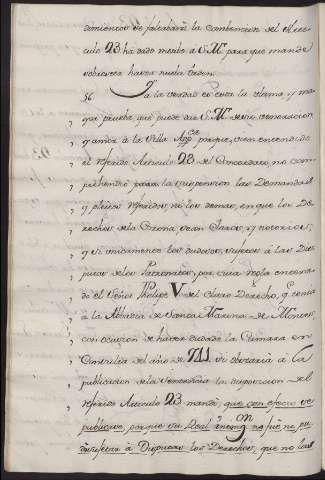 dimientos de faltarán la Combencion del Arti-
culo 23 ha dado merito à S. M. para que mande
sobreseer hasta nueba Orden.
56 Y à la verdad es esta la ultima, y ma-
yor prueba que puede dar S. M. de su veneracion
y amor à la Silla App.ca porque, bien entendido
el referido Articulo 23 del Concordato no com-
prehendiò para la suspension las Demandas
y pleitos referidos, ni los demas, en que los De-
rechos de la Corona, sean claros, y notorios,
y si unicamente los dudosos, sujetos à las Dis-
putas de los Patronatos, por cuia regla enterado
do el Señor Phelipe V del claro Derecho, q. tenia
à la Abbadia de Santa Marina de
con ocasion de haver dudado la Camara en
Consulta del año de 741 si obstaria à la
publicacion de la Sentencia la disposicion del
referido Articulo 23 mandò, que con efecto se
publicase, porque su Real intenc.on no fuè ni pu-
do sujetar à Disputas los Derechos, que no las